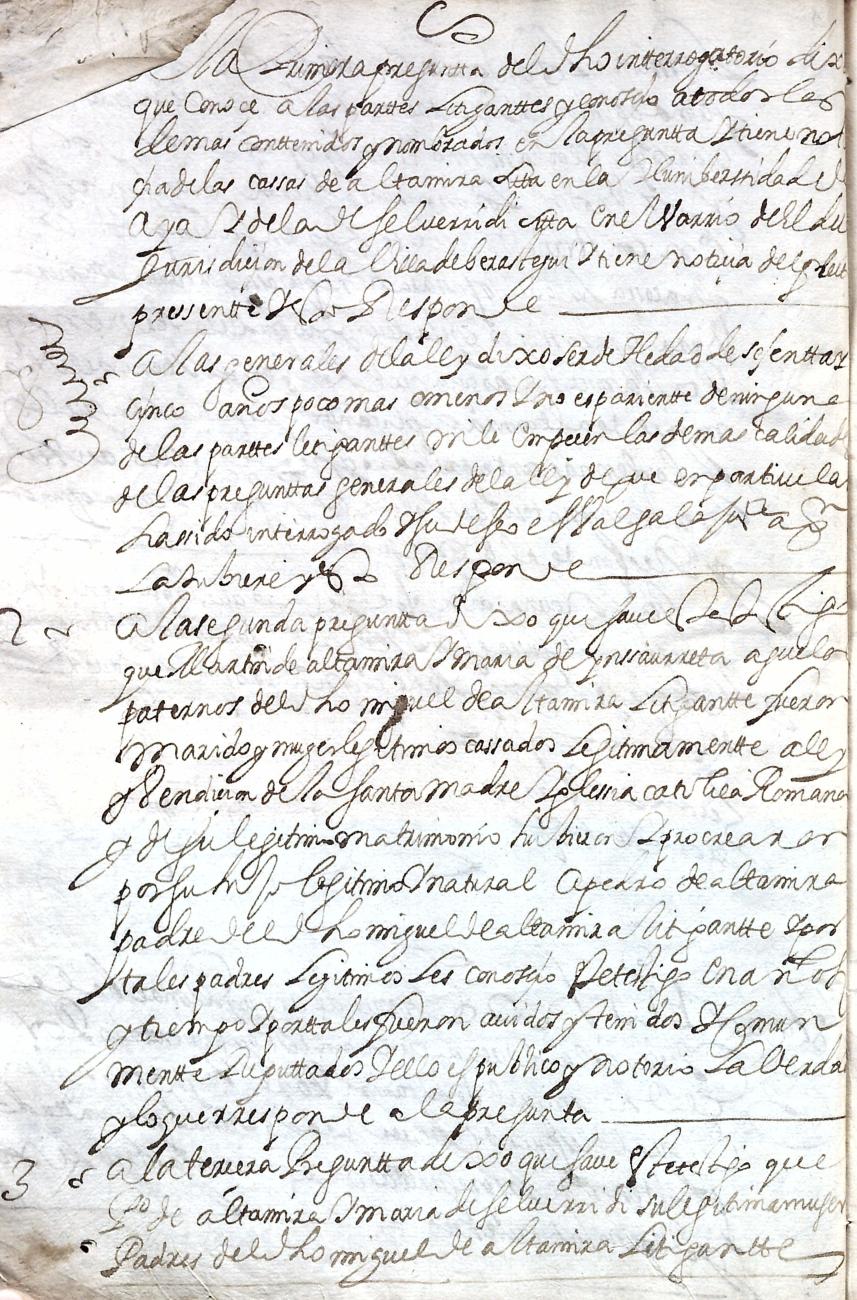 A la Primera preguntta del dho interrogatorio dixo
que Conoce a las parttes Litiganttes y conoscio a todos los
demas conttenidos y nombrados en la preguntta Y tiene noti
cia de las cassas de altamira sitta en la Uniberssidad de
aya Y de la de selverridi sitta en el Varrio de Eldu
Jurisdicion de la Villa de berastegui Y tiene noticia del pleito
pressentte Y Responde
Generales
A las generales de la ley dixo ser de Hedad de sesentta y
cinco años poco mas o menos Y no es parientte de ninguna
de las parttes litiganttes ni le empecen las demas calidades
de las pregunttas generales de la ley de que en particular
ha ssido interrogado Y su desseo es Valga la justicia a quien
La tubiere y Responde
2 A la segunda preguntta dixo que save este testigo
que Martin de altamira Y maria de ynssaurreta aguelos
paternos del dho miguel de altamira Litigantte fueron
marido y muger legitimos cassados Legitimamentte a ley
y Vendicion de la santa madre Yglessia catolica Romana
y de su legitimo matrimonio hubieron Y procrearon
por su hijo legitimo Y natural a pedro de altamira
padre del dho miguel de altamira litigantte Y por
tales padres Legitimos Les conoscio este testigo en años
y tiempo Y por ttales fueron avidos y tenidos Y comun
mentte Reputtados Y ello es publico y notorio La Verdad
y lo que rresponde a la pregunta
3 A la tercera Preguntta dixo que save este testigo que
Po de altamira Y maria de selverridi su legitima muger
Padres del dho miguel de altamira Litigantte